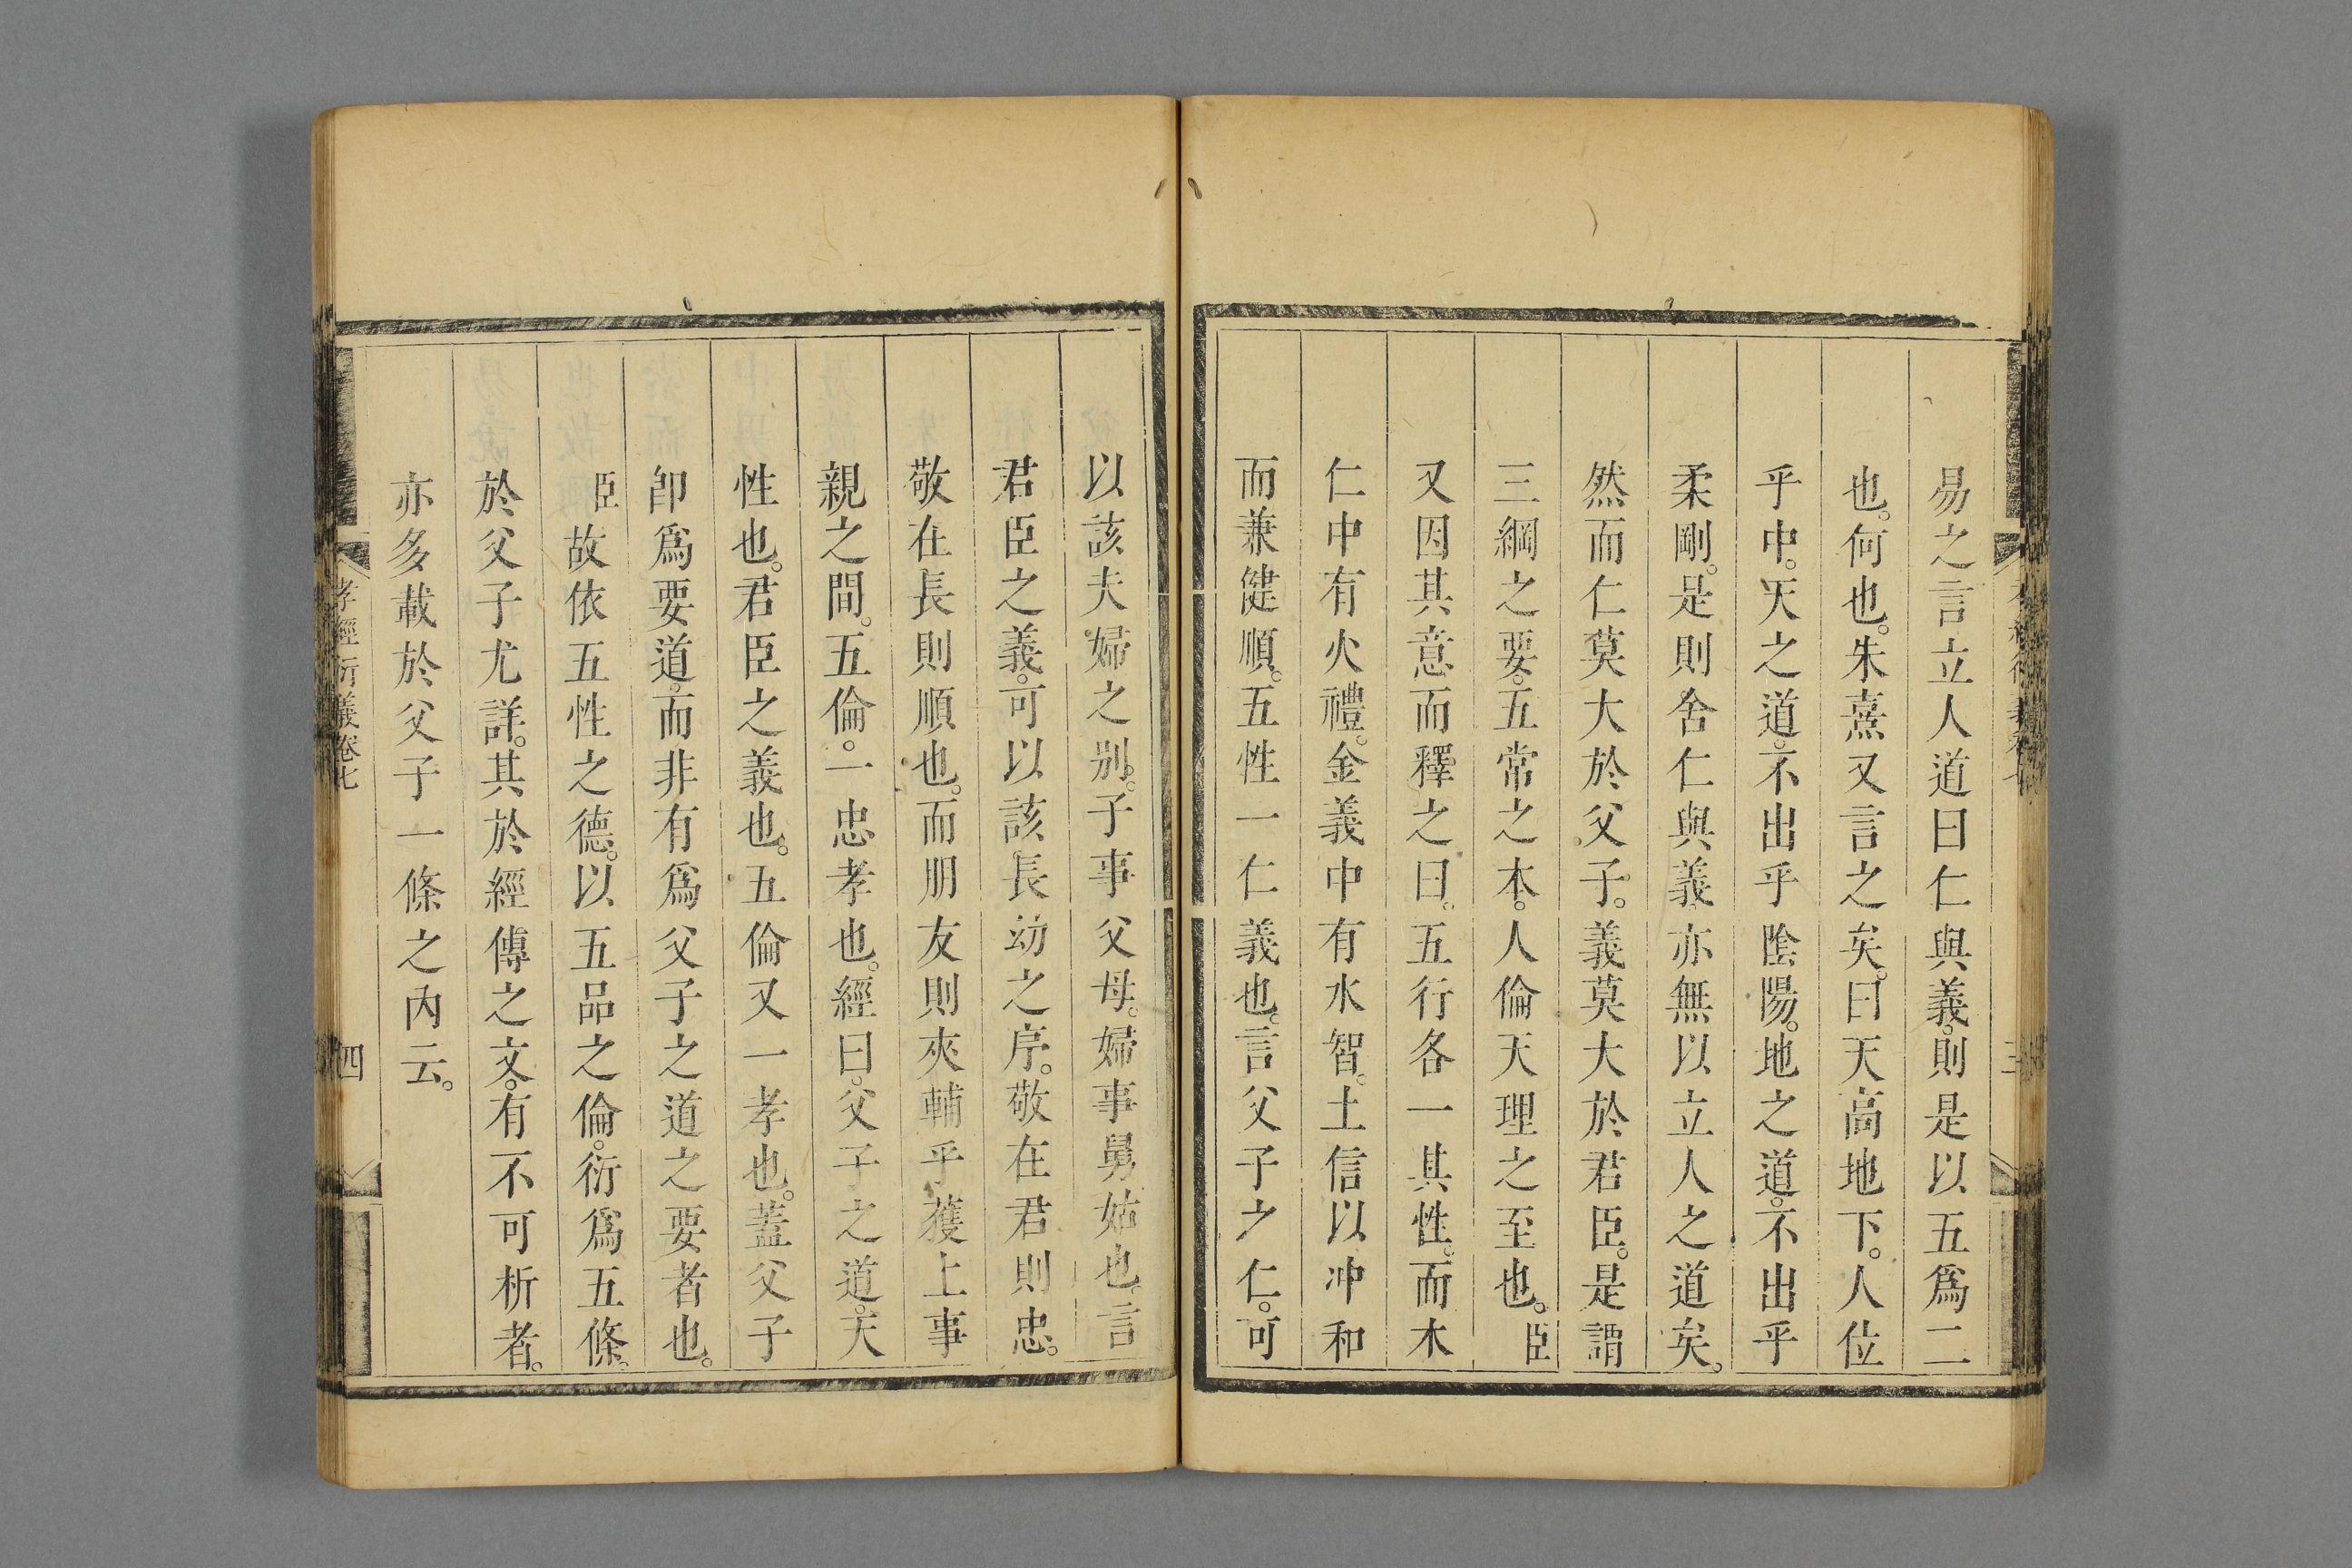 易之言立人道曰仁與義。則是以五爲二
也。何也。朱熹又言之矣。曰天高地下。人位
乎中。天之道。不出乎陰陽。地之道。不出乎
柔剛。是則舍仁與義。亦無以立人之道矣。
然而仁莫大於父子。義莫大於君臣。是謂
三綱之要。五常之本。人倫天理之至也。臣
又因其意而釋之曰。五行各一其性。而木
仁中有火禮。金義中有水智。土信以冲和
而兼健順。五性一仁義也。言父子之仁。可
以該夫婦之別。子事父母。婦事舅姑也。言
君臣之義。可以該長幼之序。敬在君則忠。
敬在長則順也。而朋友則夾輔乎獲上事
親之間。五倫。一忠孝也。經曰。父子之道。天
性也。君臣之義也。五倫又一孝也。蓋父子
卽爲要道。而非有爲父子之道之要者也。
臣故依五性之德。以五品之倫。衍爲五條。
於父子尤詳。其於經傳之文。有不可析者。
亦多載於父子一條之內云。
孝經衍義卷七
四